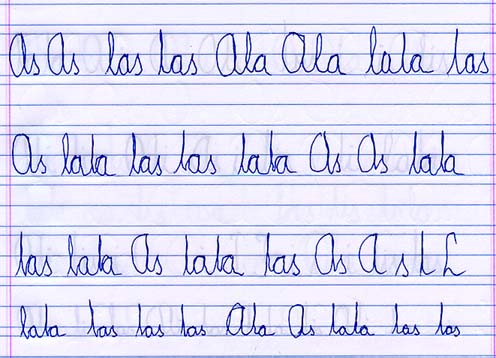 As As las las Ala Ala lala las
As lala las las lala As As lala
las lala As lala las As A s l L
lala las las las Ala As lala las las